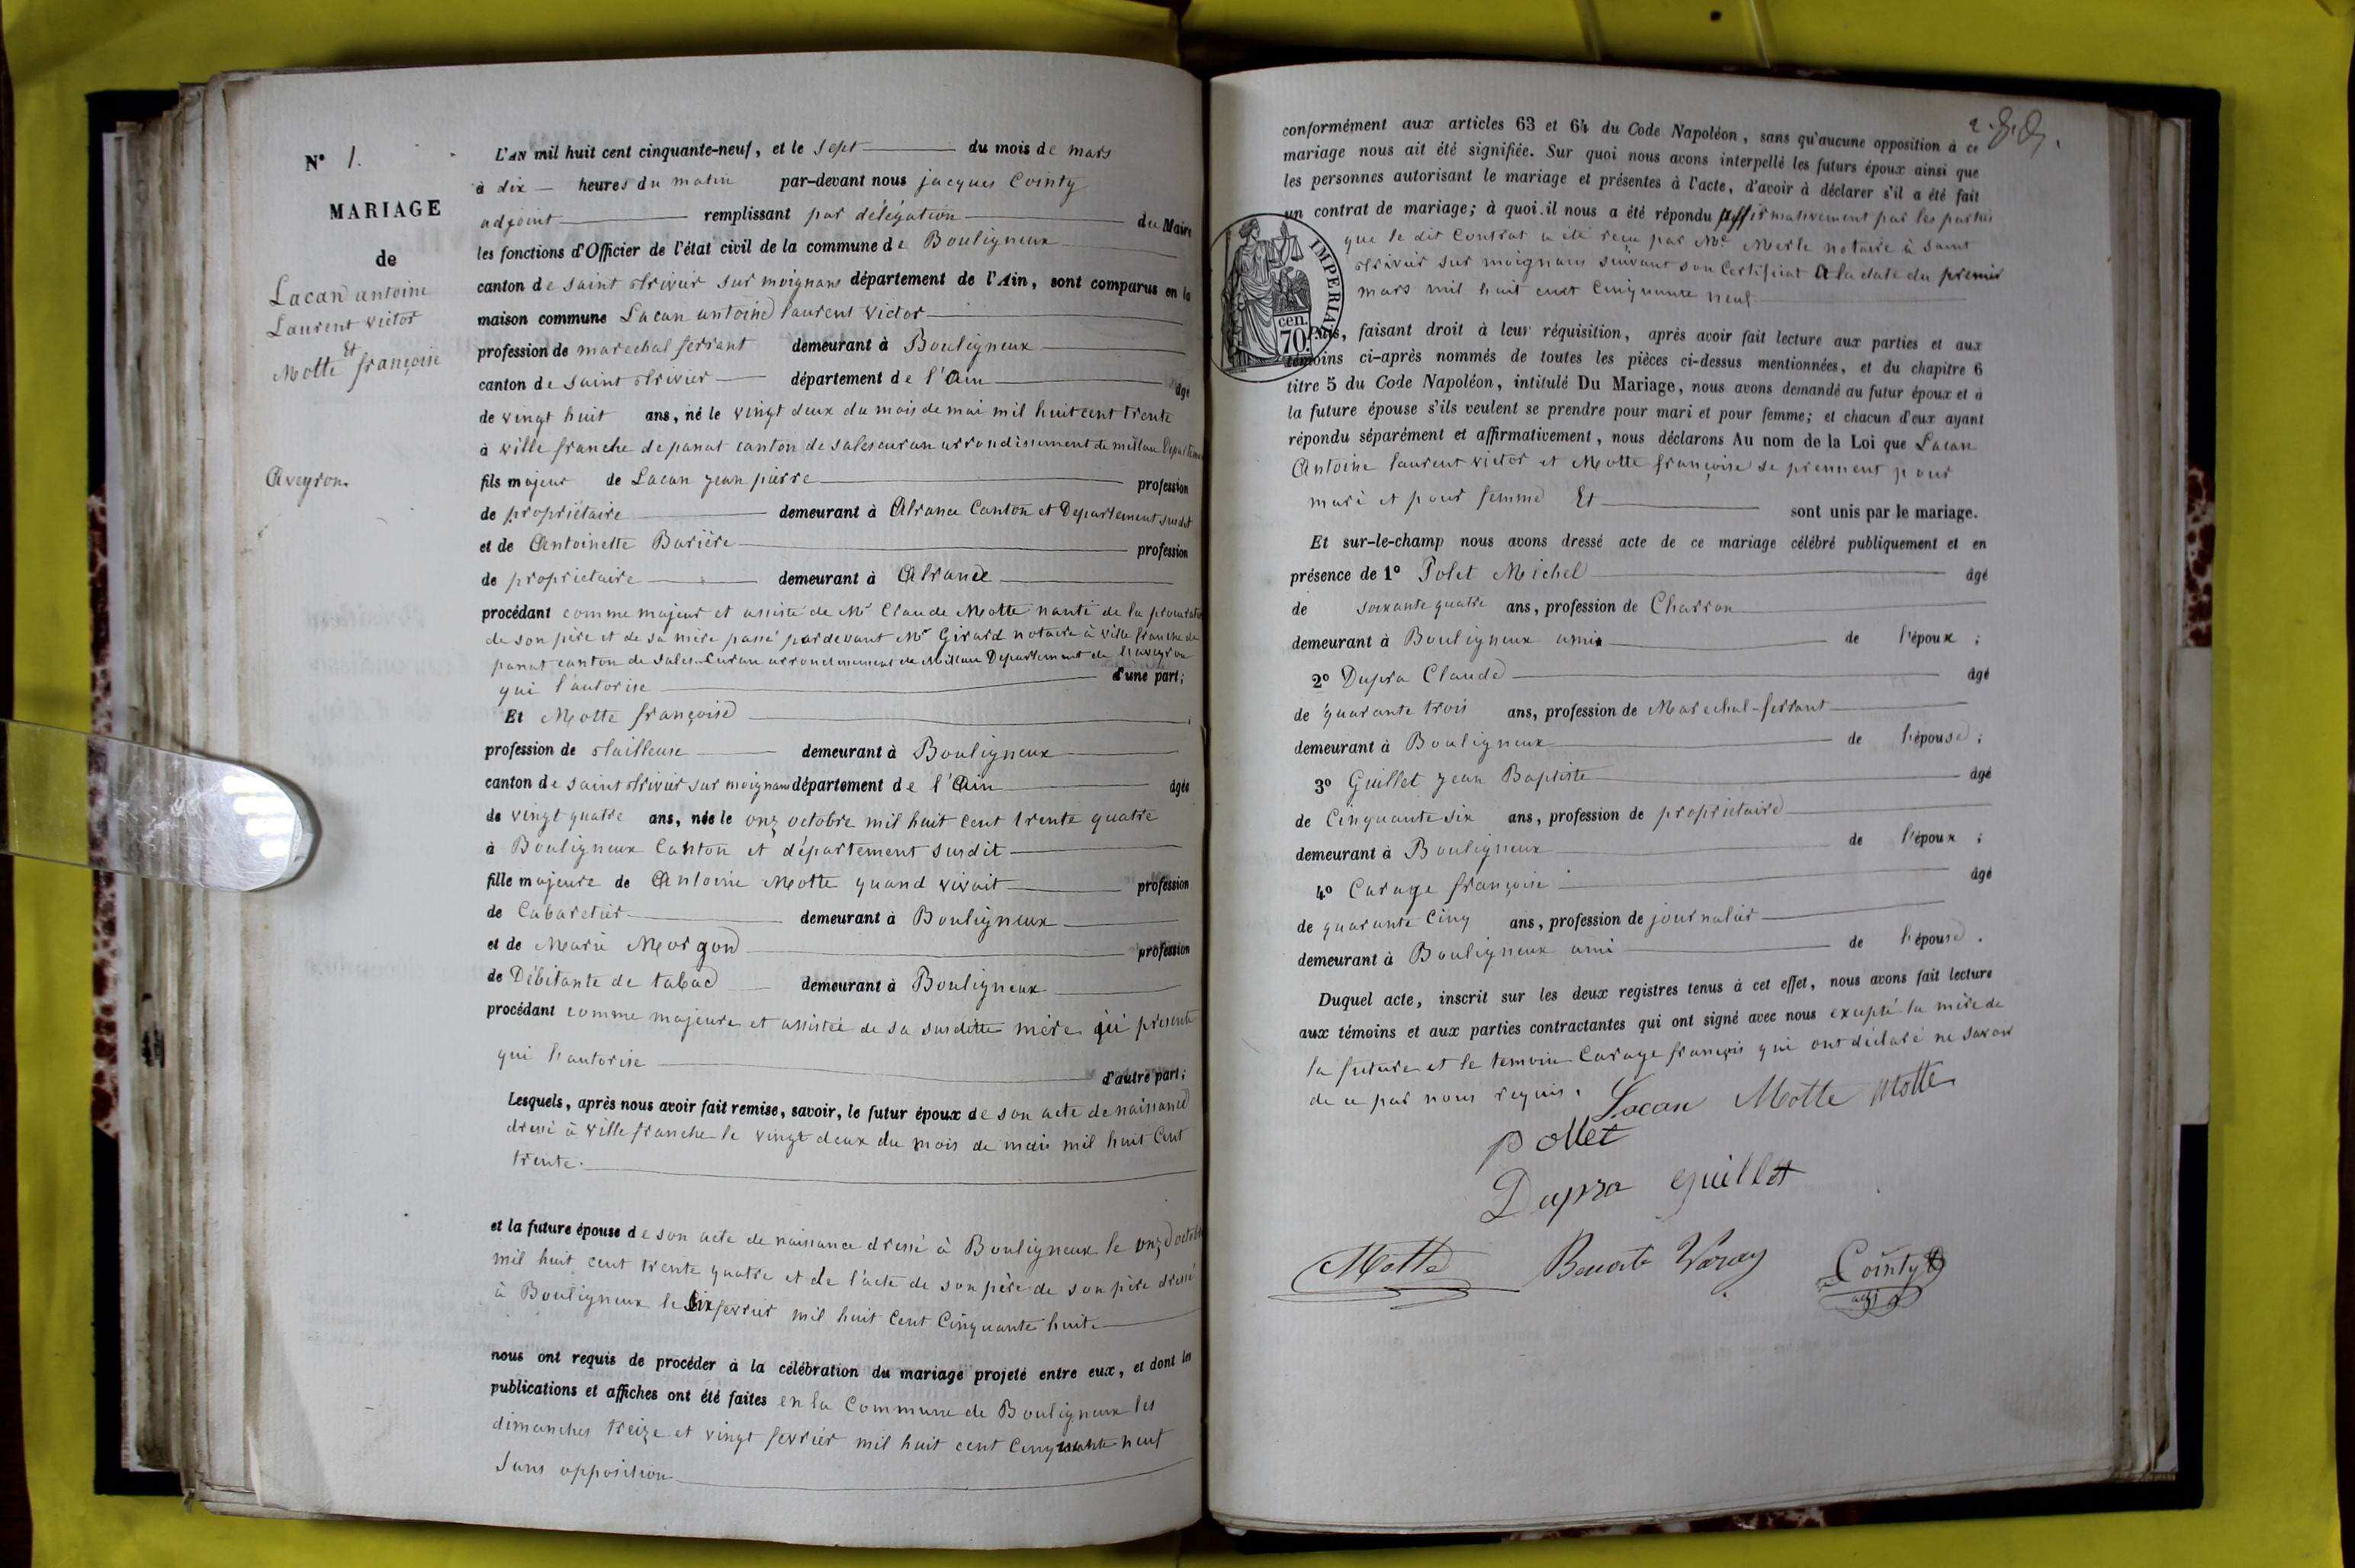 N° 1.
MARIAGE
de
Lacan antoine
Laurent victor
Et
Motte françoise
Aveyron.
L'AN mil huit cent cinquante-neuf, et le sept du mois de mars
à dix heures du matin par-devant nous jacques Cointy
adjoint remplissant par délégation du Maire
les fonctions d'Officier de l'état civil de la commune de Bouligneux
canton de saint trivier sur moignans département de l'Ain, sont comparus en la
maison commune Lacan antoine laurent victor
profession de marechal ferrant demeurant à Bouligneux
canton de saint trivier département de l'Ain âgé
de vingt huit ans, né le vingt deux du mois de mai mil huit cent trente
à ville franche de panat canton de sales curan arrondissement de millau Departement
fils majeur de Lacan jean pierre profession
de propriétaire demeurant à Alrance Canton et Departement susdit
et de Antoinette Barière profession
de propriétaire demeurant à Alrance
procédant comme majeur et assisté de Mr Claude Motte nanti de la procuration
de son père et de sa mère passé pardevant Mr Girard notaire à ville franche de
panat canton de sales-Curan arrondissement de Millau Departement de l'aveyron
qui l'autorise d'une part;
Et Motte françoise
profession de tailleuse demeurant à Bouligneux
canton de saint trivier sur moignans département de l'Ain âgée
de vingt quatre ans, née le onz octobre mil huit cent trente quatre
à Bouligneux Canton et département susdit
fille majeure de Antoine Motte quand vivait profession
de Cabaretier demeurant à Bouligneux
et de Marie Morgon profession
de Débitante de tabac demeurant à Bouligneux
procédant comme majeure et assistée de sa susditte mère ici presente
qui l'autorise d'autre part;
Lesquels, après nous avoir fait remise, savoir, le futur époux de son acte de naissance
dressé à ville franche le vingt deux du mois de mai mil huit Cent
trente.
et la future épouse de son acte de naissance dressé à Bouligneux le onze octobre
mil huit cent trente quatre et de l'acte de son père de son père dressé
à Bouligneux le six fevrier mil huit Cent Cinquante huit
nous ont requis de procéder à la célébration du mariage projeté entre eux, et dont les
publications et affiches ont été faites en la Commune de Bouligneux les
dimanches treize et vingt fevrier mil huit cent Cinquante neuf
Sans opposition
conformément aux articles 63 et 64 du Code Napoléon, sans qu'aucune opposition à ce
mariage nous ait été signifiée. Sur quoi nous avons interpellé les futurs époux ainsi que
les personnes autorisant le mariage et présentes à l'acte, d'avoir à déclarer s'il a été fait
un contrat de mariage; à quoi il nous a été répondu affirmativement par les parties
que le dit Contrat a été recu par Me Merle notaire à saint
trivier sur moignans suivant son Certificat à la date du premier
mars mil huit cent Cinquante neuf
IMPERIAL
70 cen.
Puis, faisant droit à leur réquisition, après avoir fait lecture aux parties et aux
témoins ci-après nommés de toutes les pièces ci-dessus mentionnées, et du chapitre 6
titre 5 du Code Napoléon, intitulé Du Mariage, nous avons demandé au futur époux et à
la future épouse s'ils veulent se prendre pour mari et pour femme; et chacun d'eux ayant
répondu séparément et affirmativement, nous déclarons Au nom de la Loi que Lacan
Antoine laurent victor et Motte françoise se prennent pour
mari et pour femme Et sont unis par le mariage.
Et sur-le-champ nous avons dressé acte de ce mariage célébré publiquement et en
présence de 1° Polet Michel âgé
de soixante quatre ans, profession de Charron
demeurant à Bouligneux ami de l'époux;
2° Dupra Claude âgé
de quarante trois ans, profession de Marechal-ferrant
demeurant à Bouligneux de l'épouse;
3° Guillet jean Baptiste âgé
de Cinquante six ans, profession de propriétaire
demeurant à Bouligneux de l'époux;
4° Carage françois âgé
de quarante Cinq ans, profession de journalier
demeurant à Bouligneux ami de l'épouse.
Duquel acte, inscrit sur les deux registres tenus à cet effet, nous avons fait lecture
aux témoins et aux parties contractantes qui ont signé avec nous excepté la mère de
la future et le temoin Carage françois qui ont déclaré ne savoir
de ce par nous requis.
Lacan Motte Motte
pollet
Dupra Guillet
Motte Cointy
adj